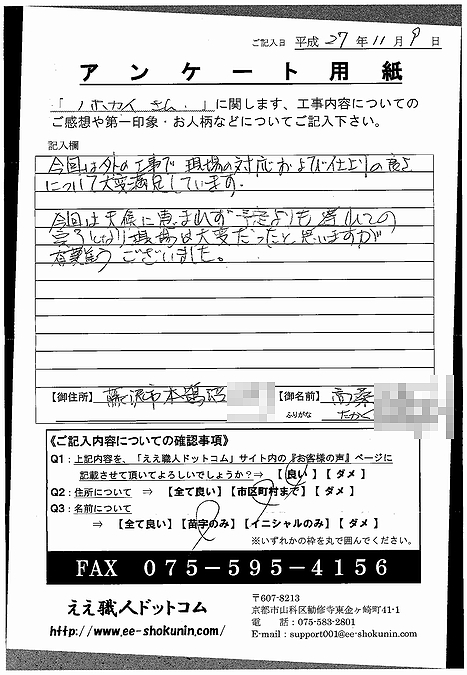 ご記入日 平成 27 年 11 月 9 日
アンケート用紙
「 ノホカイ さん 」に関します、工事内容についての
ご感想や第一印象・お人柄などについてご記入下さい。
記入欄
今回は外の工事で 現場の対応および仕上りの良さ
について大変満足しています。
今回は天候に恵まれず 予定よりも遅れての
完了となり現場は大変だったと思いますが
有難う ございました。
【御住所】 藤沢市本鵠沼
【御名前】 高桑
ふりがな たかく
《ご記入内容についての確認事項》
Q1：上記内容を、「ええ職人ドットコム」サイト内の『お客様の声』ページに
記載させて頂いてよろしいでしょうか？⇒ 【良い】【ダメ】
Q2：住所について ⇒ 【全て良い】【市区町村まで】【ダメ】
Q3：名前について
⇒ 【全て良い】【苗字のみ】【イニシャルのみ】【ダメ】
※いずれかの枠を丸で囲んでください。
FAX 075-595-4156
ええ職人ドットコム
http://www.ee-shokunin.com/
〒607-8213
京都市山科区勧修寺東金ヶ崎町41-1
電 話：075-583-2801
E-mail：support001@ee-shokunin.com